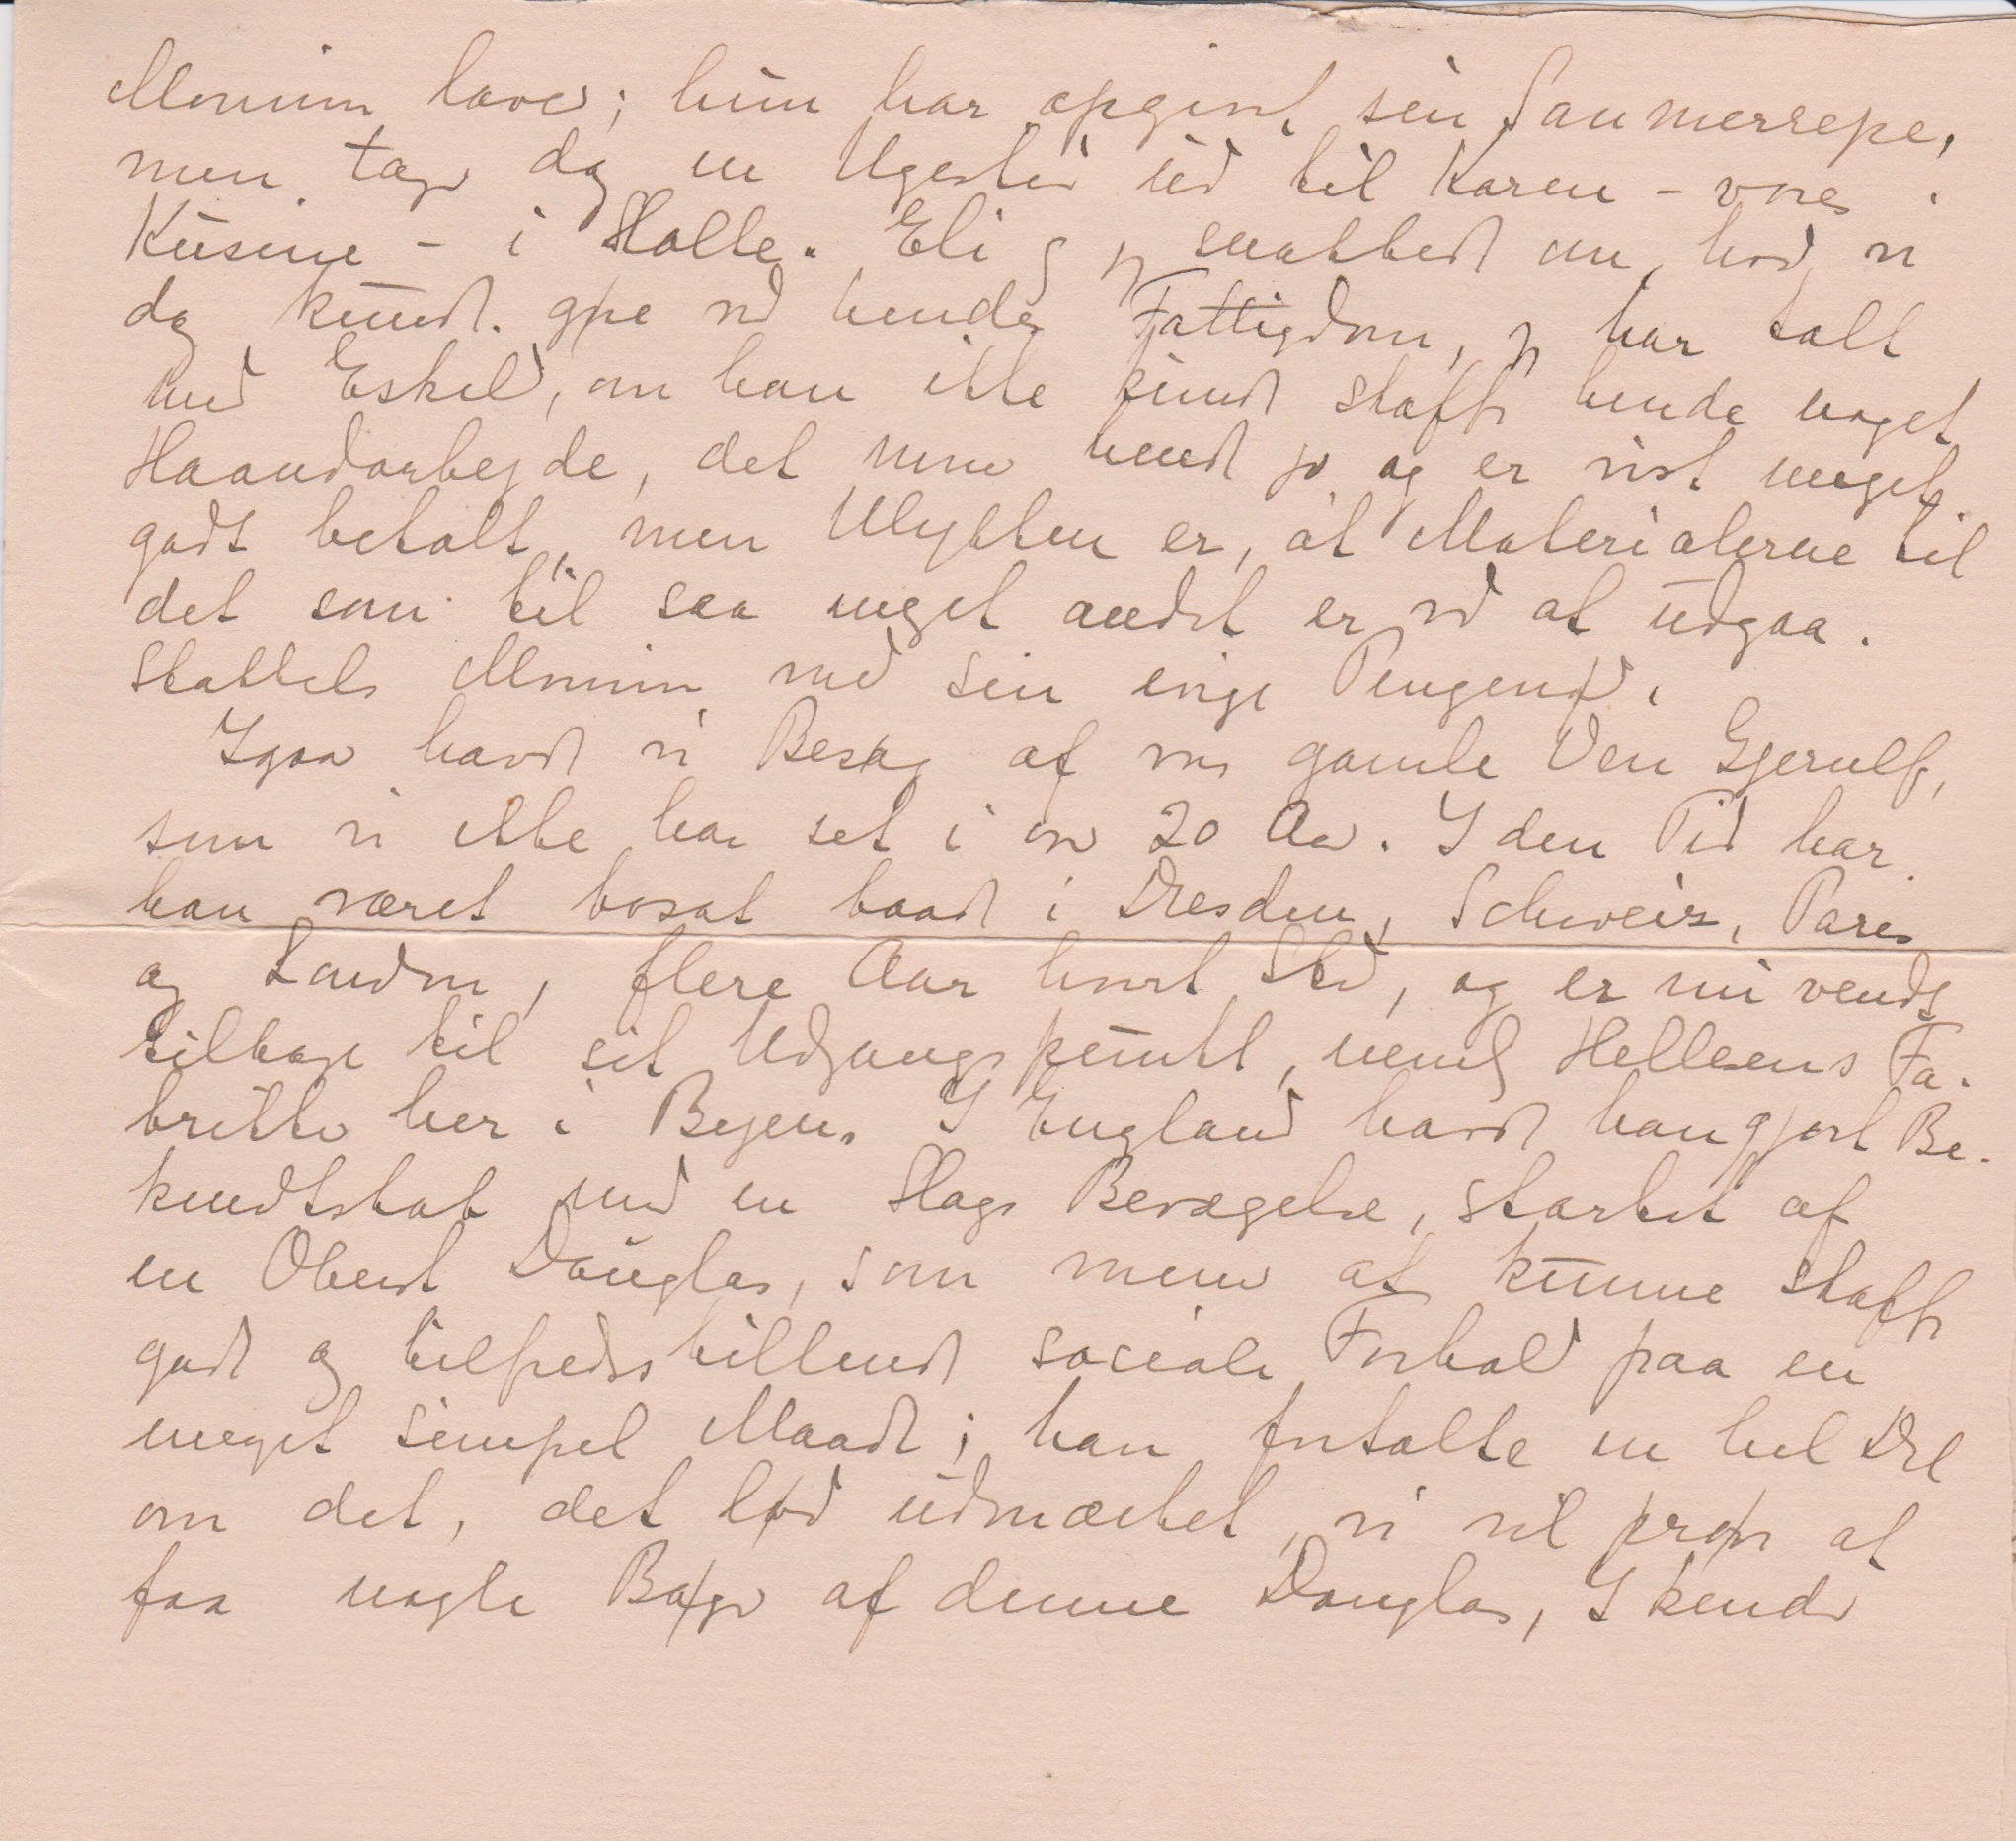 Mornin laver; hun har opgivet sin Sommerrejse,
men tager dog en Ugestid ud til Karen - vores
Kusine - i Holte. Eli og jeg snakkede om, hvad vi
dog kunde gøre ved hendes Fattigdom, jeg har talt
med Eskild, om han ikke kunde skaffe hende noget
Haandarbejde, det mener hende jo og er vist meget
godt betalt, men Ulykken er, at Materialerne til
det som til saa meget andet er ved at udgaa.
Stakkels Mornin med sin evige Pengenød.
Igaar havde vi Besøg af vor gamle Ven Gjerulff,
som vi ikke har set i over 20 Aar. I den Tid har
han været bosat baade i Dresden, Schweiz, Paris
og London, flere Aar hvert Sted, og er nu vendt
tilbage til sit Udgangspunkt, nemlig Hellesens Fa-
brikker her i Byen. I England havde han gjort Be-
kendtskab med en Slags Bevægelse, startet af
en Oberst Douglas, som mener at kunne skaffe
gode og tilfredsstillende sociale Forhold paa en
meget simpel Maade; han fortalte en hel Del
om det, det lød udmærket, vi vil prøve at
faa nogle Bøger af denne Douglas, I kender